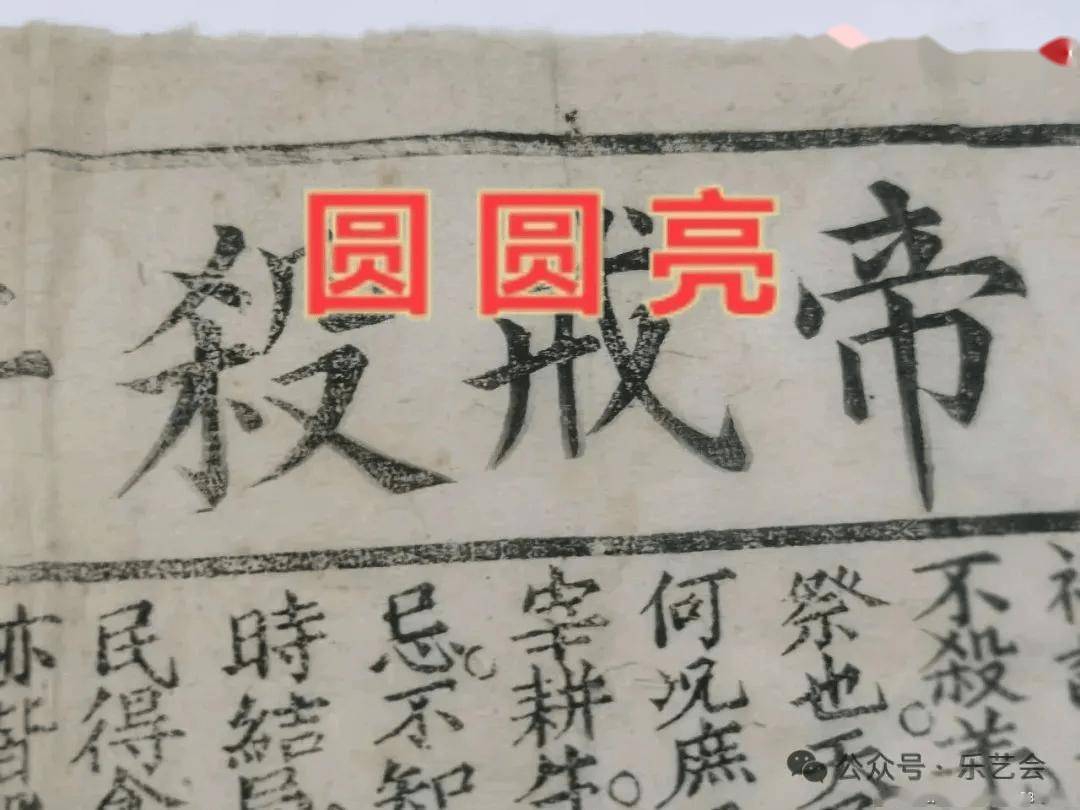 圆圆亮
帝戒殺
不殺羊
祭也。不
何况庶
宰耕牛。
忌。不知
時結
民得食
亦皆
公众号 · 乐艺会